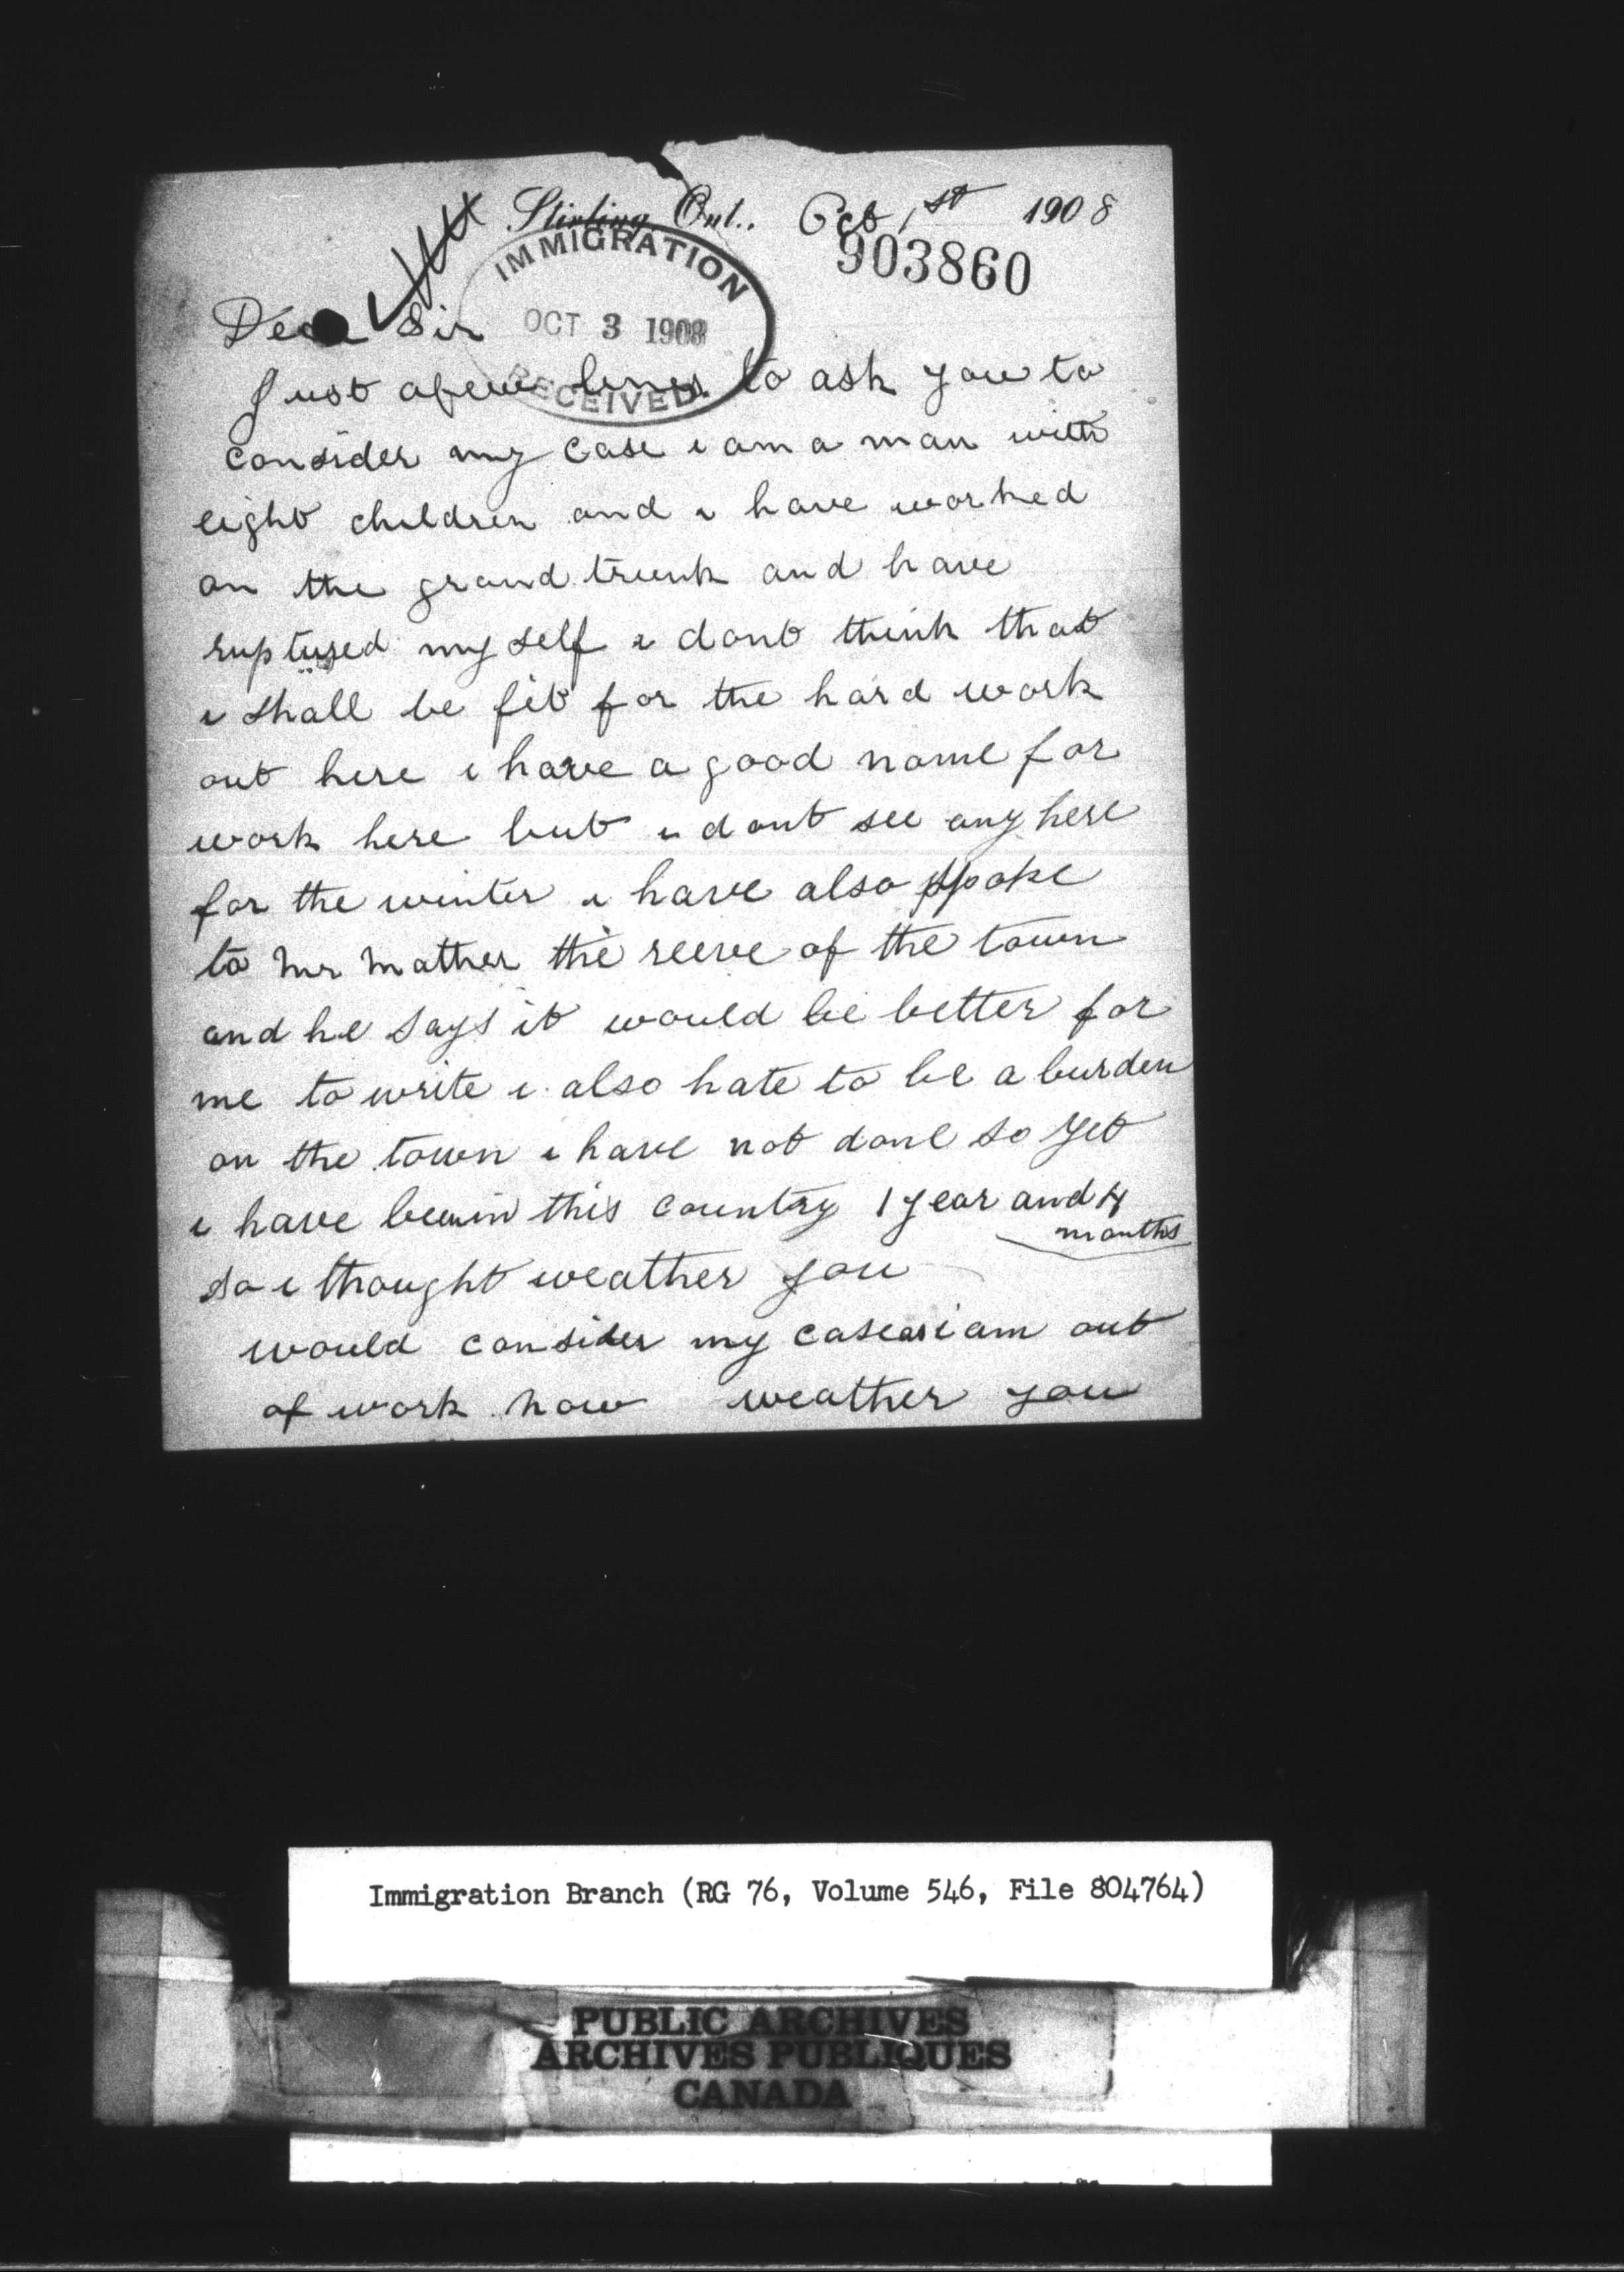 Stirling, Ont., Oct 1st 1908
903860
IMMIGRATION
OCT 3 1908
RECEIVED
Dear Sir
Just afew lines to ask you to
consider my case i am a man with
eight children and i have worked
on the grand trunk and have
ruptused my self i dont think that
i shall be fit for the hard work
out here i have a good name for
work here but i dont see any here
for the winter i have also spoke
to mr mather the reeve of the town
and he says it would be better for
me to write i also hate to be a burden
on the town i have not done so yet
i have been in this country 1 year and 4
months
so i thought weather you
would consider my case as i am out
of work now weather you
Immigration Branch (RG 76, Volume 546, File 804764)
PUBLIC ARCHIVES
ARCHIVES PUBLIQUES
CANADA